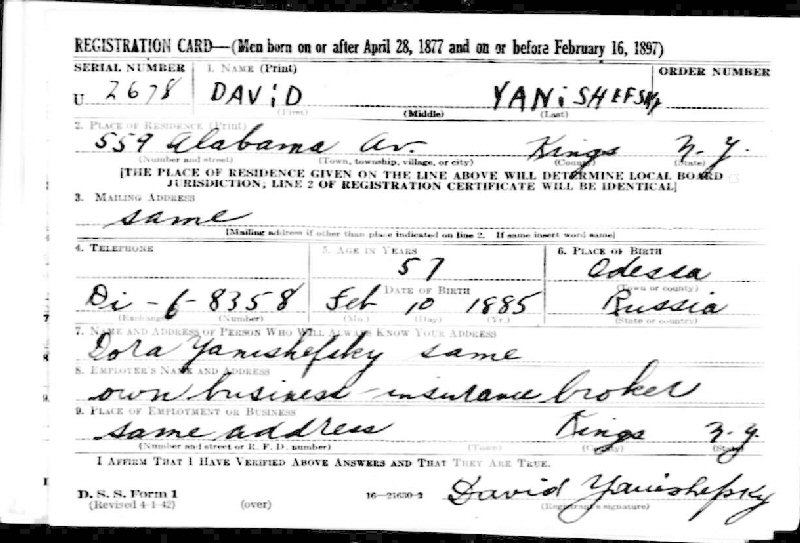 REGISTRATION CARD—(Men born on or after April 28, 1877 and on or before February 16, 1897)
SERIAL NUMBER 1. NAME (Print) ORDER NUMBER
U 2678 DAVID YANiSHEFSKY
(First) (Middle) (Last)
2. PLACE OF RESIDENCE (Print)
559 Alabama Av. Kings N.Y.
(Number and street) (Town, township, village, or city) (County) (State)
[THE PLACE OF RESIDENCE GIVEN ON THE LINE ABOVE WILL DETERMINE LOCAL BOARD
JURISDICTION; LINE 2 OF REGISTRATION CERTIFICATE WILL BE IDENTICAL]
3. MAILING ADDRESS
same
[Mailing address if other than place indicated on line 2. If same insert word same]
4. TELEPHONE 5. AGE IN YEARS 6. PLACE OF BIRTH
57 Odessa
DATE OF BIRTH (Town or county)
Di-6-8358 Feb 10 1885 Russia
(Exchange) (Number) (Mo.) (Day) (Yr.) (State or country)
7. NAME AND ADDRESS OF PERSON WHO WILL ALWAYS KNOW YOUR ADDRESS
Dora Yanishefsky same
8. EMPLOYER'S NAME AND ADDRESS
own business-insurance broker
9. PLACE OF EMPLOYMENT OR BUSINESS
same address Kings N.Y.
(Number and street or R. F. D. number) (Town) (County) (State)
I AFFIRM THAT I HAVE VERIFIED ABOVE ANSWERS AND THAT THEY ARE TRUE.
D. S. S. Form 1
(Revised 4-1-42) (over) 16—21630-2 David Yanishefsky
(Registrant's signature)